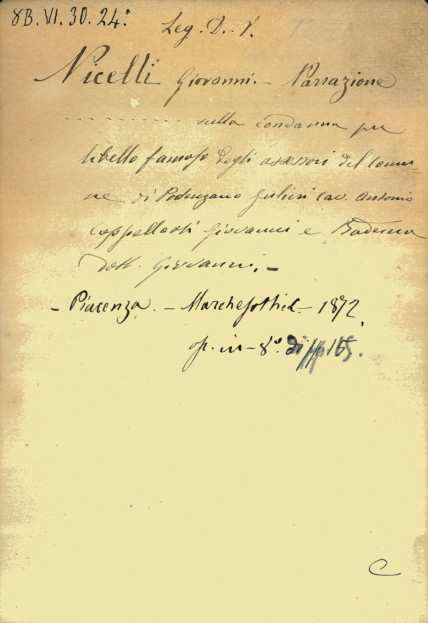 8B. VI. 30. 24:
Leg. D. - V.
Nicelli Giovanni. - Narrazione
. . . . . . . . . . sulla condanna per
libello famoso degli assessori del comu-
ne di Podenzano cav. Antonio
Cappellotti Giovanni e
Dott. Giovanni. -
- Piacenza. - Marchesotti ed. - 1872.
op. in - 8° di pp. 165.
C